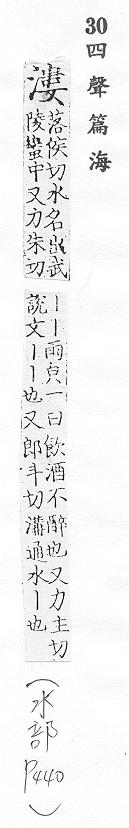 30 四聲篇海
漊
落侯切水名出武
陵蠻中又力朱切
丨丨雨皃一曰飲酒不醉也又力主切
說文丨丨也又郎斗切溝通水丨也
（水部 P440）